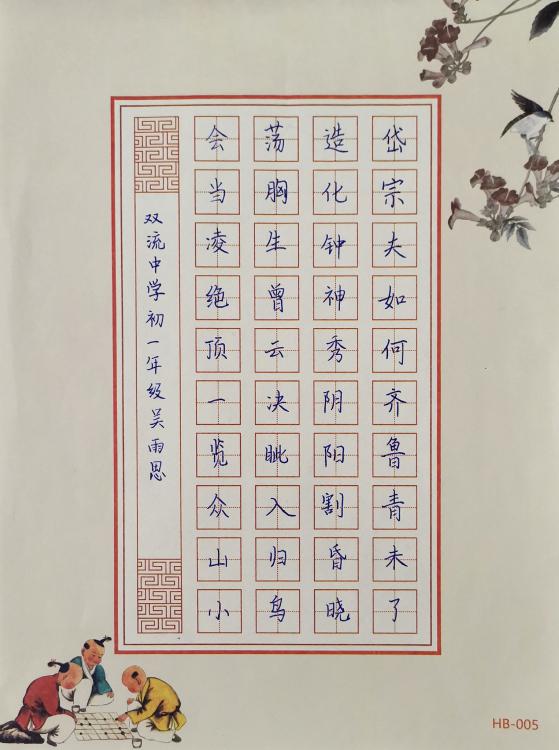 岱宗夫如何齐鲁青未了
造化钟神秀阴阳割昏晓
荡胸生曾云决眦入归鸟
会当凌绝顶一览众山小
双流中学初一年级吴雨思
HB-005